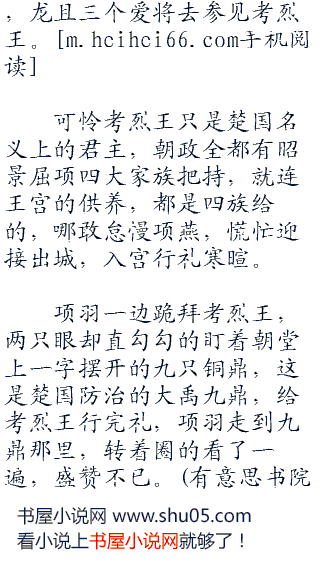 ，龙且三个爱将去参见考烈
王。[m.hcihci66.com手机阅
读]
可怜考烈王只是楚国名
义上的君主，朝政全都有昭
景屈项四大家族把持，就连
王宫的供养，都是四族给
的，哪敢怠漫项燕，慌忙迎
接出城，入宫行礼寒暄。
项羽一边跪拜考烈王，
两只眼却直勾勾的盯着朝堂
上一字摆开的九只铜鼎，这
是楚国防治的大禹九鼎，给
考烈王行完礼，项羽走到九
鼎那里，转着圈的看了一
遍，盛赞不已。(有意思书院
书屋小说网 www.shu05.com
看小说上书屋小说网就够了！